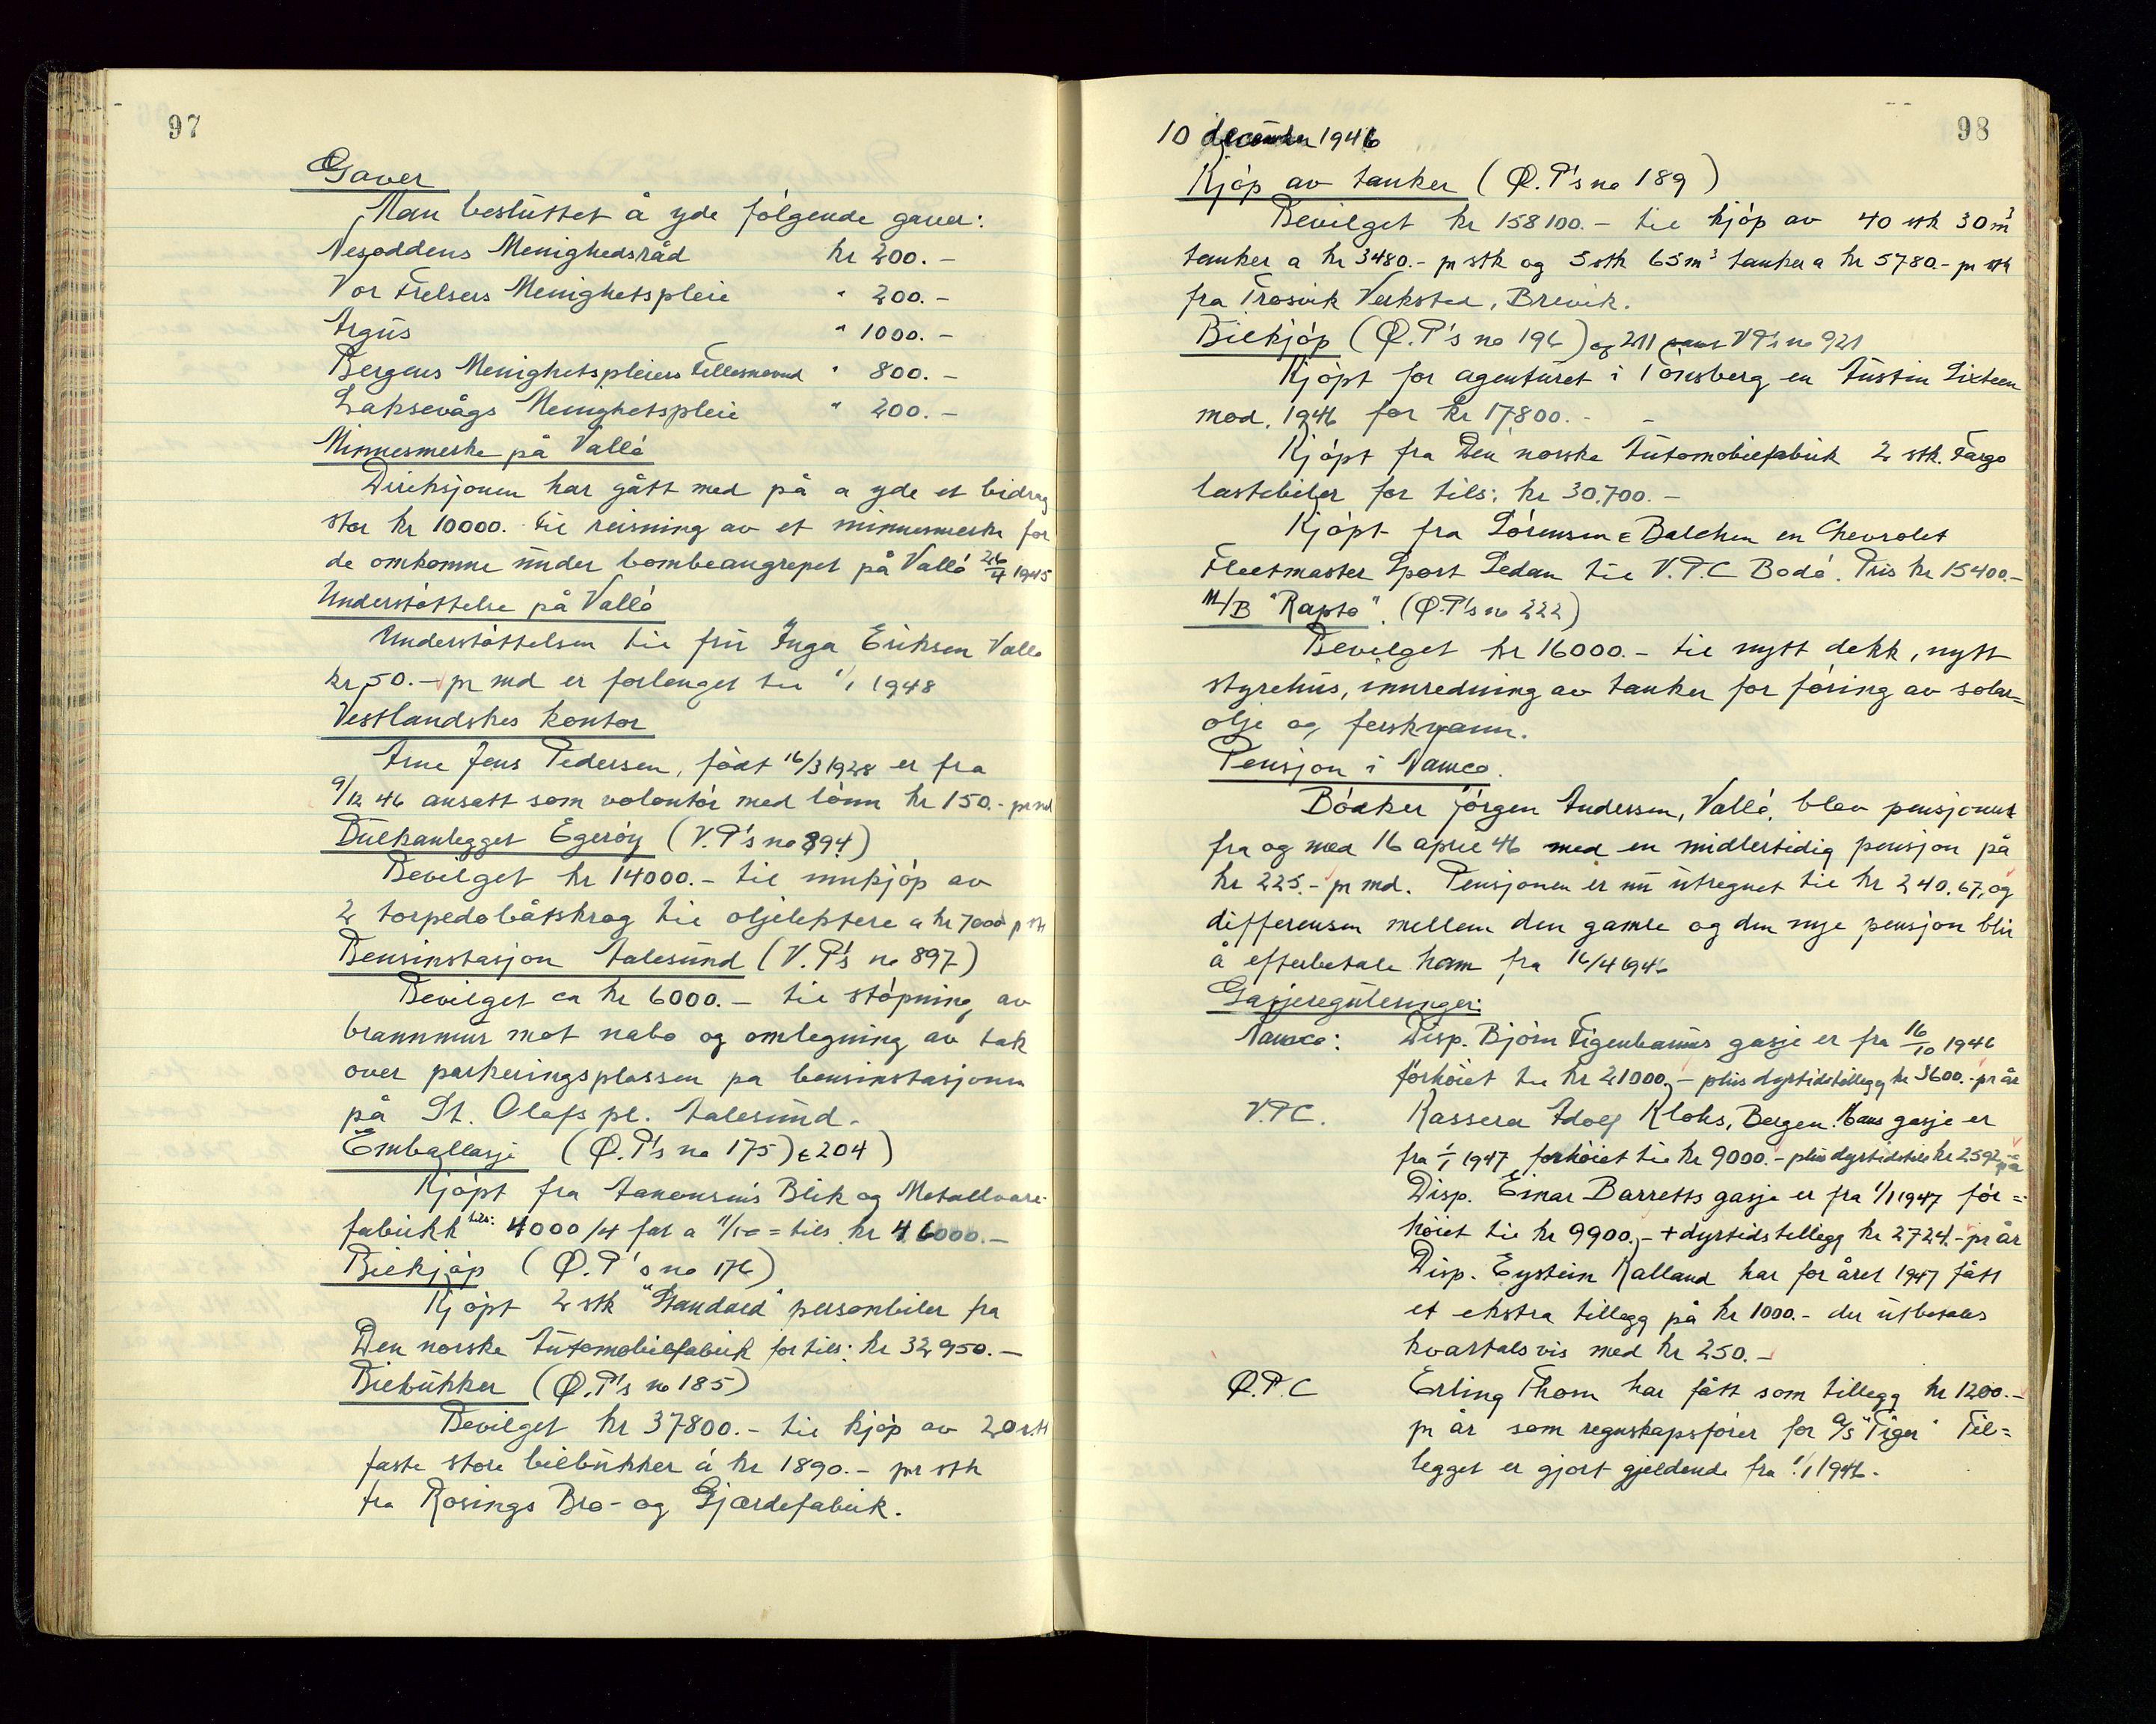 97
Gaver
Man besluttet å yde følgende gaver:
Nesoddens Menighedsråd kr 200.–
Vor Frelsers Menighetspleie " 200.–
Argus " 1000.–
Bergens Menighetspleiers Fellesnevnd " 800.–
Laksevågs Menighetspleie " 200.–
Minnesmerke på Vallö
Direksjonen har gått med på a yde et bidrag
stor kr 10000.– til reisning av et minnesmerke for
de omkomne under bombeangrepet på Vallö 26/4 1945
Understöttelse på Vallö
Understöttelsen til fru Inga Eriksen Vallö
kr 50.– pr md er forlenget til 1/1 1948
Vestlandskes kontor
Arne Jens Pedersen, födt 16/3 1928 er fra
9/12 46 ansatt som volontör med lönn kr 150.– pr md
Tankanlegget Egeröy (V.P's no 894)
Bevilget kr 14000.– til innkjöp av
2 torpedobåtskrog til oljelektere a kr 7000 p stk
Bensinstasjon Aalesund (V.P's no 897)
Bevilget ca kr 6000.– til stöpning av
brannmur mot nabo og omlegning av tak
over parkeringsplassen pa bensinstasjonen
på St. Olafs pl. Aalesund.
Emballasje (Ø.P's no 175) & 204)
Kjöpt fra Aanonsens Blik og Metallvare-
fabrikk tils: 4000 1/4 fat a 11/50 = tils. kr 46000.–
Bilkjöp (Ø.P's no 176)
Kjöpt 2 stk "Standard" personbiler fra
Den norske Automobilfabrik for tils: kr 32950.–
Bilbukker (Ø.P's no 185)
Bevilget kr 37800.– til kjöp av 20 stk
faste store bilbukker á kr 1890.– pr stk
fra Rosings Bro- og Gjærdefabrik.
98
10 december 1946
Kjöp av tanker (Ø.P's no 189)
Bevilget kr 158100.– til kjöp av 40 stk 30 m³
tanker a kr 3480.– pr stk og 5 stk 65 m³ tanker a kr 5780.– pr stk
fra Trosvik Verksted, Brevik.
Bilkjöp (Ø.P's no 196) og 211 samt VP's no 921
Kjöpt for agenturet i Tönsberg en Austin Sixteen
mod. 1946 for kr 17800.–
Kjöpt fra Den norske Automobilfabrik 2 stk. Fargo
lastebiler for tils: kr 30.700.–
Kjöpt fra Sörensen & Balchen en Chevrolet
Fleetmaster Sport Sedan til V.P.C Bodö. Pris kr 15400.–
M/B "Rapto". (Ø.P's no 222)
Bevilget kr 16000.– til nytt dekk, nytt
styrehus, innredning av tanker for föring av solar=
olje og ferskvann.
Pensjon i Vamco.
Bödker Jörgen Andersen, Vallö, blev pensjonert
fra og med 16 april 46 med en midlertidig pensjon på
kr 225.– pr md. Pensjonen er nu utregnet til kr 240.67, og
differensen mellem den gamle og den nye pensjon blir
å efterbetale ham fra 16/4 1946
Gasjereguleringer:
Vamco: Disp. Björn Figenbaums gasje er fra 16/10 1946
forhöiet til kr 21000.– plus dyrtidstillegg kr 3600.– pr år
V.P.C. Kassera Adolf Klohs, Bergen. Hans gasje er
fra 1/1 1947 forhöiet til kr 9000.– plus dyrtidstill kr 2592.– pr år
Disp. Einar Barretts gasje er fra 1/1 1947 for=
höiet til kr 9900.– + dyrtidstillegg kr 2724.– pr år
Disp. Eystein Kalland har for året 1947 fått
et ekstra tillegg på kr 1000.– der utbetales
kvartalsvis med kr 250.–
Ø.P.C Erling Thom har fått som tillegg kr 1200.–
pr år som regnskapsförer for A/S "Tiger" Til=
legget er gjort gjeldende fra 1/1 1946.